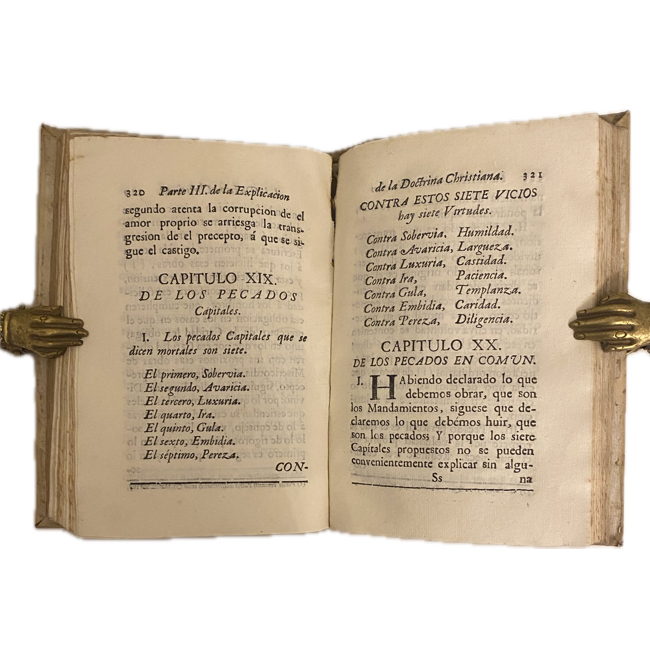 320 Parte III. de la Explicacion
segundo atenta la corrupcion de el
amor proprio se arriesga la trans-
gresion de el precepto, á que se si-
gue el castigo.
CAPITULO XIX.
DE LOS PECADOS
Capitales.
I. Los pecados Capitales que se
dicen mortales son siete.
El primero, Sobervia.
El segundo, Avaricia.
El tercero, Luxuria.
El quarto, Ira.
El quinto, Gula.
El sexto, Embidia.
El séptimo, Pereza.
CON-
de la Doctrina Christiana. 321
CONTRA ESTOS SIETE VICIOS
hay siete Virtudes.
Contra Sobervia. Humildad.
Contra Avaricia, Largueza.
Contra Luxuria, Castidad.
Contra Ira, Paciencia.
Contra Gula, Templanza.
Contra Embidia, Caridad.
Contra Pereza, Diligencia.
CAPITULO XX.
DE LOS PECADOS EN COMUN.
I. HAbiendo declarado lo que
debemos obrar, que son
los Mandamientos, siguese que de-
claremos lo que debemos huir, que
son los pecados: Y porque los siete
Capitales propuestos no se pueden
convenientemente explicar sin algu-
Ss na